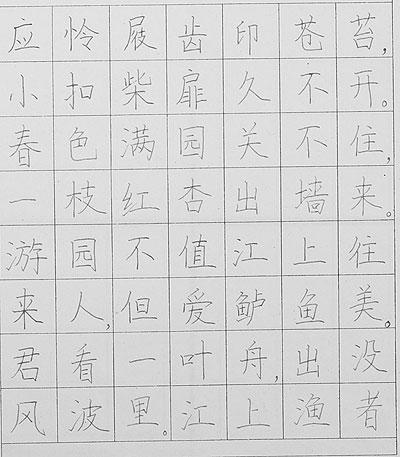 应怜屐齿印苍苔，
小扣柴扉久不开。
春色满园关不住，
一枝红杏出墙来。
游园不值江上往
来人，但爱鲈鱼美。
君看一叶舟，出没
风波里。江上渔者